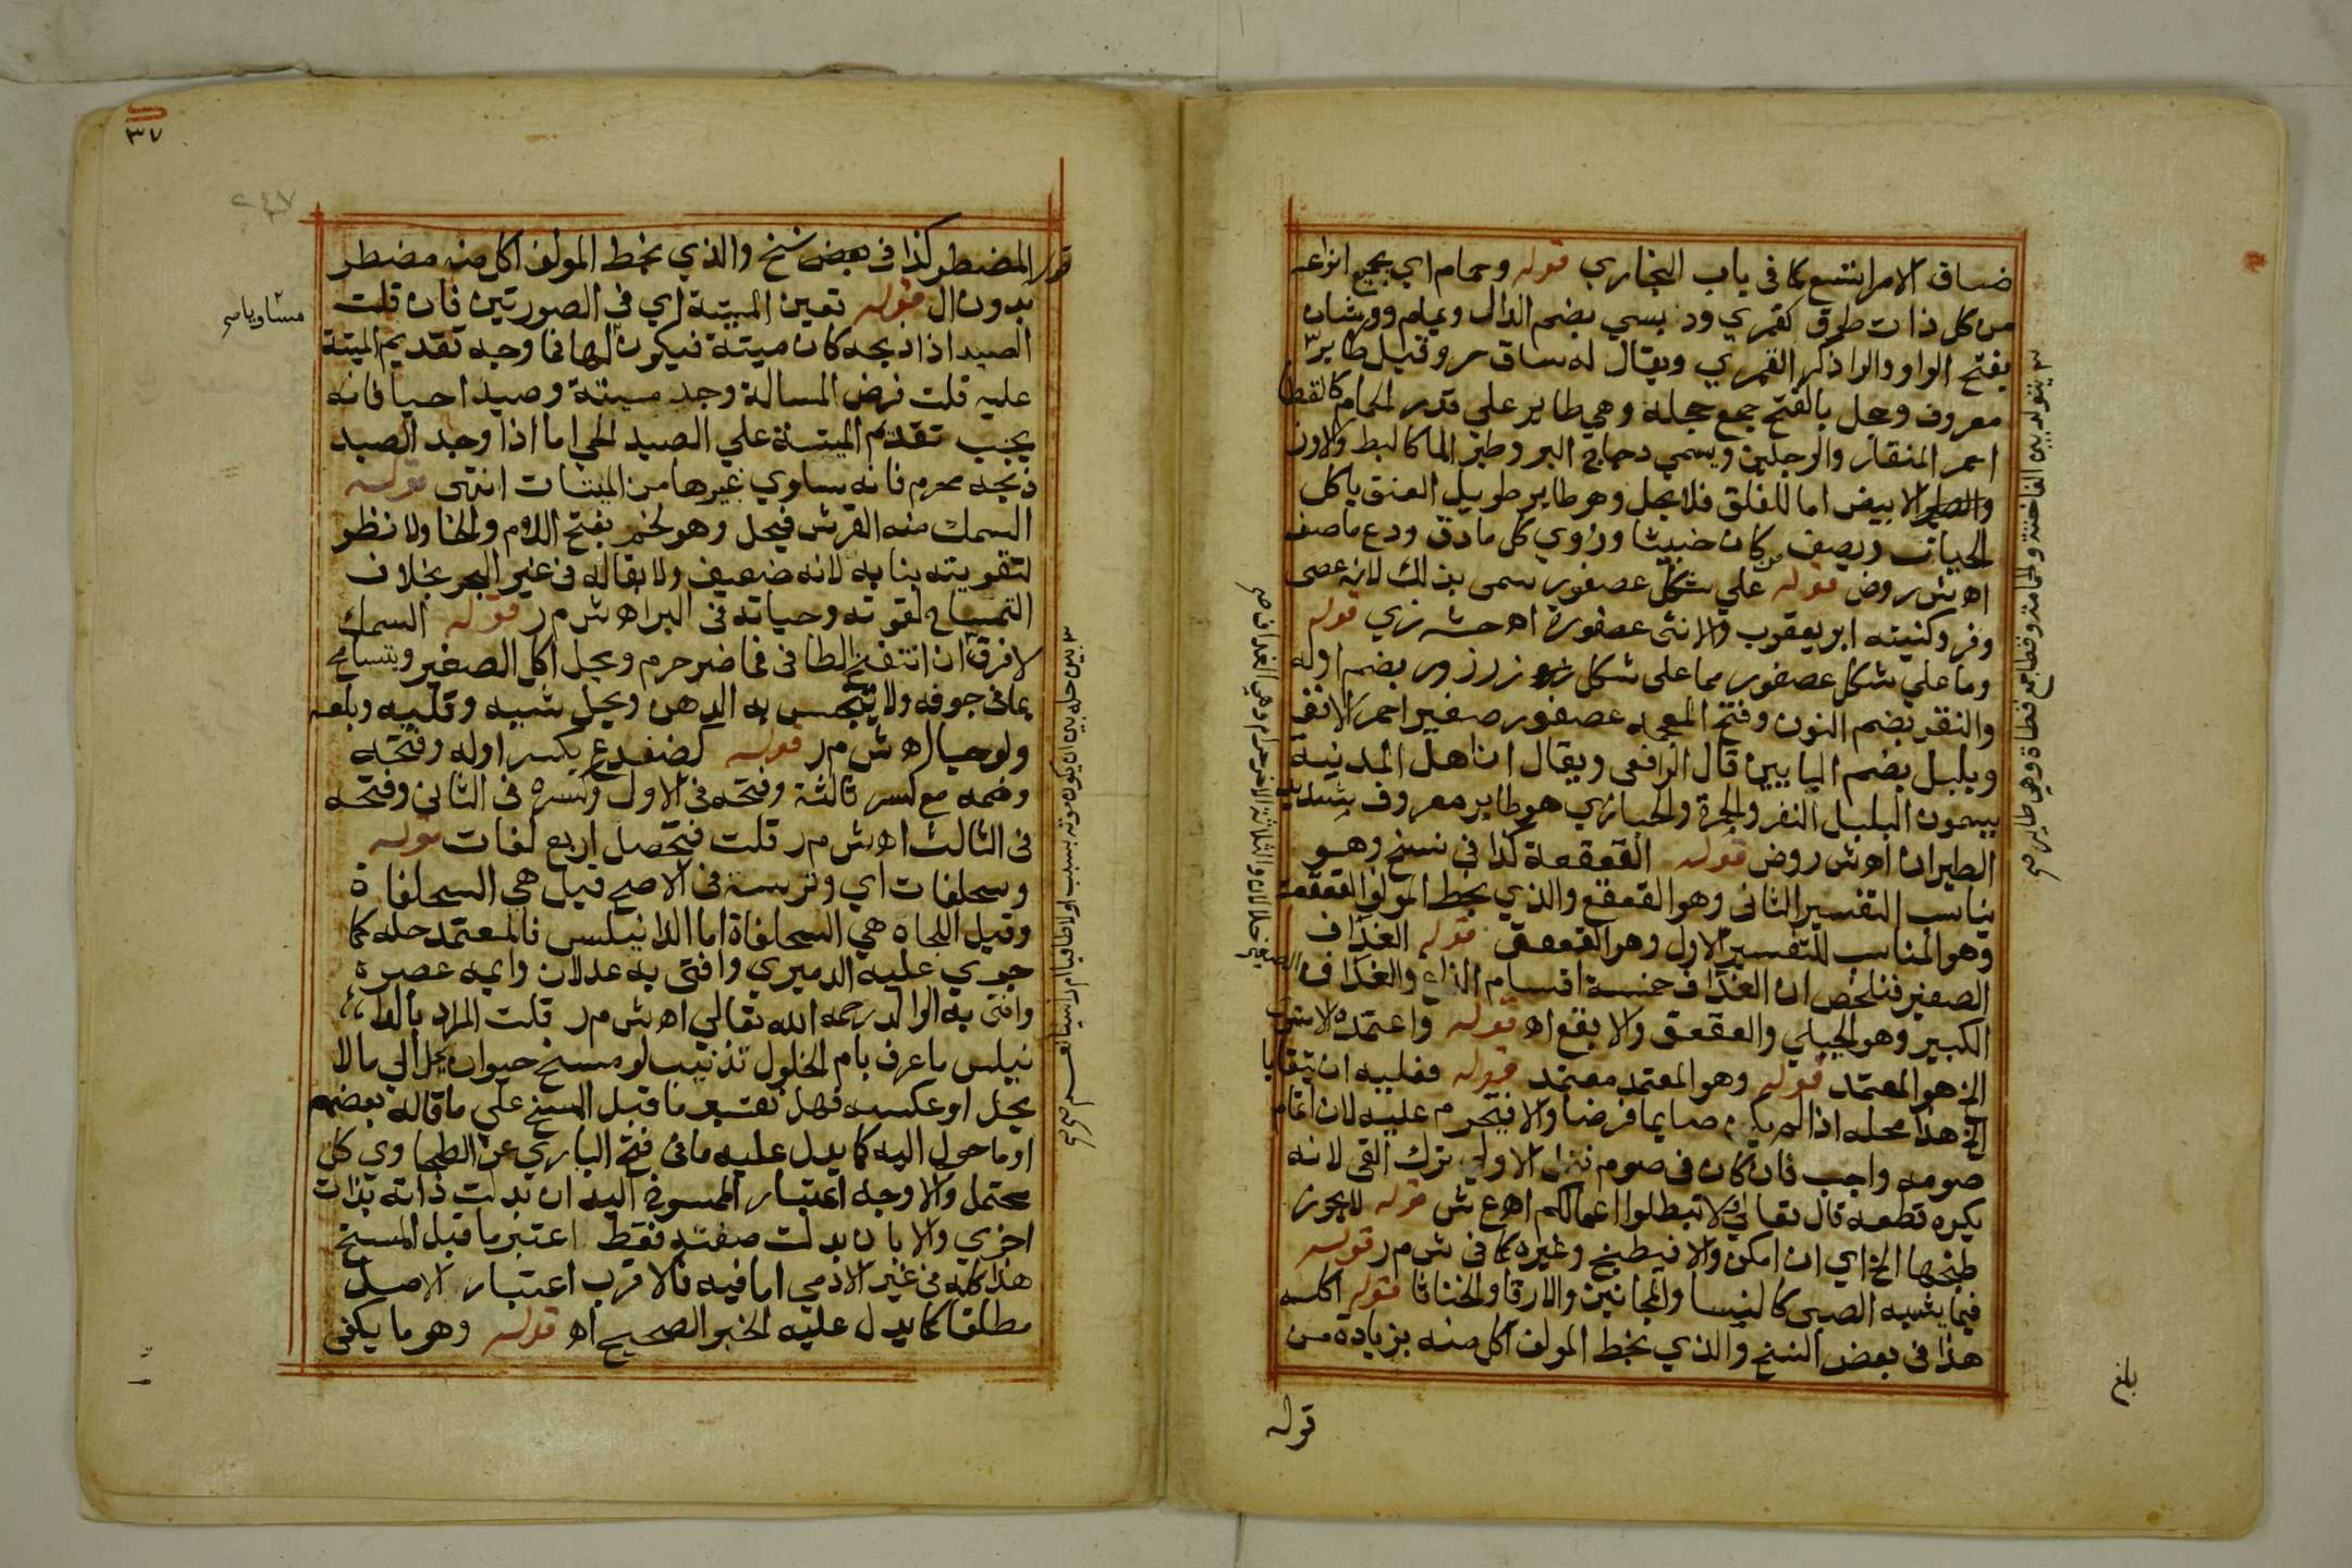 ضاق الامر اتسع كما في باب البخاري قوله وحمام اي بجميع انواعه
من كل ذات طوق كقمري ودبسي بضم الدال ويمام وورشان
بفتح الواو والرا ذكر القمري ويقال له ساق حر وقيل طاير
معروف وحجل بالفتح جمع حجلة وهي طاير علي قدر الحمام كالقطا
احمر المنقار والرجلين ويسمي دجاج البر وطير الما كالبط والاوز
والطير الابيض اما للقلق فلا يحل وهو طاير طويل العنق ياكل
الحيات ويصف كان خبيثا وروي كل مادف ودع ماصف
اه ش روض قوله علي شكل عصفور سمي بذلك لانه عصي
وفر وكنيته ابو يعقوب والانثي عصفورة اه حش زي قوله
وما علي شكل عصفور مما علي شكل زرزور بضم اوله
والنغر بضم النون وفتح المعجمه عصفور صغير احمر الانف
وبلبل بضم البايين قال الرافعي ويقال ان اهل المدينة
يسمون البلبل النغر والحمرة والحباري هو طاير معروف شديد
الطيران اه ش روض قوله القعقعة كذا في نسخ وهو
يناسب التفسير الثاني وهو القعقع والذي بخط المولف العقعقة
وهو المناسب للتفسير الاول وهو العقعق قوله الغداف
الصغير فتلخص ان الغداف خمسة اقسام الزاغ والغداف
الكبير وهو الجبلي والعقعق والابقع اه قوله واعتمده الاسنوي
الخ هو المعتمد قوله وهو المعتمد معتمد قوله فعليه ان يتقايا
الخ هذا محله اذا لم يكن صايما فرضا والا فيحرم عليه لان اتمام
صومه واجب فان كان في صوم نفل الاولي ترك القي لانه
يكره قطعه قال تعالي لا تبطلوا اعمالكم اه ع ش قوله لا يجوز
طبخها الخ اي ان امكن والا فبطبخ وغيره كما في ش م ر قوله
فيما يشبه الصبي كالنسا والمجانين والارقا والخناثا قوله اكله
هذا في بعض النسخ والذي بخط المولف اكل منه بزيادة من
قوله
بلغ
قوله المضطر كذا في بعض نسخ والذي بخط المولف اكل منه مضطر
بدون ال قوله تعين الميتة اي في الصورتين فان قلت
الصيد اذا ذبحه كان ميتة فيكون لها فما وجه تقديم الميتة
عليه قلت فرض المسالة وجد ميتة وصيدا حيا فانه
يجب تقديم الميتة علي الصيد الحي اما اذا وجد الصيد
ذبحه محرم فانه يساوي غيرها من الميتات انتهي قوله
السمك منه القرش فيحل وهو لخم بفتح اللام والخا ولا نظر
لتقويته بنابه لانه ضعيف ولا بقا له في غير البحر بخلاف
التمساح لقوته وحياته في البر اه ش م ر قوله السمك
لا فرق ان انتفخ الطافي فما ضر حرم ويحل اكل الصغير ويتسامح
بما في جوفه ولا يتنجس به الدهن ويحل شيه وقليه وبلعه
ولو حيا اه ش م ر قوله كضفدع بكسر اوله وفتحه
وضمه مع كسر ثالثه وفتحه في الاول وكسره في الثاني وفتحه
في الثالث اه ش م ر قلت فتحصل اربع لغات قوله
وسحلفات اي وترسة في الاصح قيل هي السحلفاة
وقيل اللجاه هي السحلفاة اما الدانيلس فالمعتمد حله كما
جري عليه الدميري وافتي به عدلان وايمه عصره
وافتي به الوالد رحمه الله تعالي اه ش م ر قلت المراد بالدا
نيلس ما عرف بام الخلول تذنيب لو مسخ حيوان يحل الي ما لا
يحل او عكسه فهل يعتبر ما قبل المسخ علي ما قاله بعضهم
او ما حول اليه كما يدل عليه ما في فتح الباري عن الطحاوي كل
محتمل والاوجه اعتبار الممسوخ اليه ان بدلت ذاته بذات
اخري والا بان بدلت صفته فقط اعتبر ما قبل المسخ
هذا كله في غير الادمي اما فيه فالاقرب اعتبار الاصل
مطلقا كما يدل عليه الخبر الصحيح اه قوله وهو ما يكفي
٣٧
٢٤٧
مساويا صح